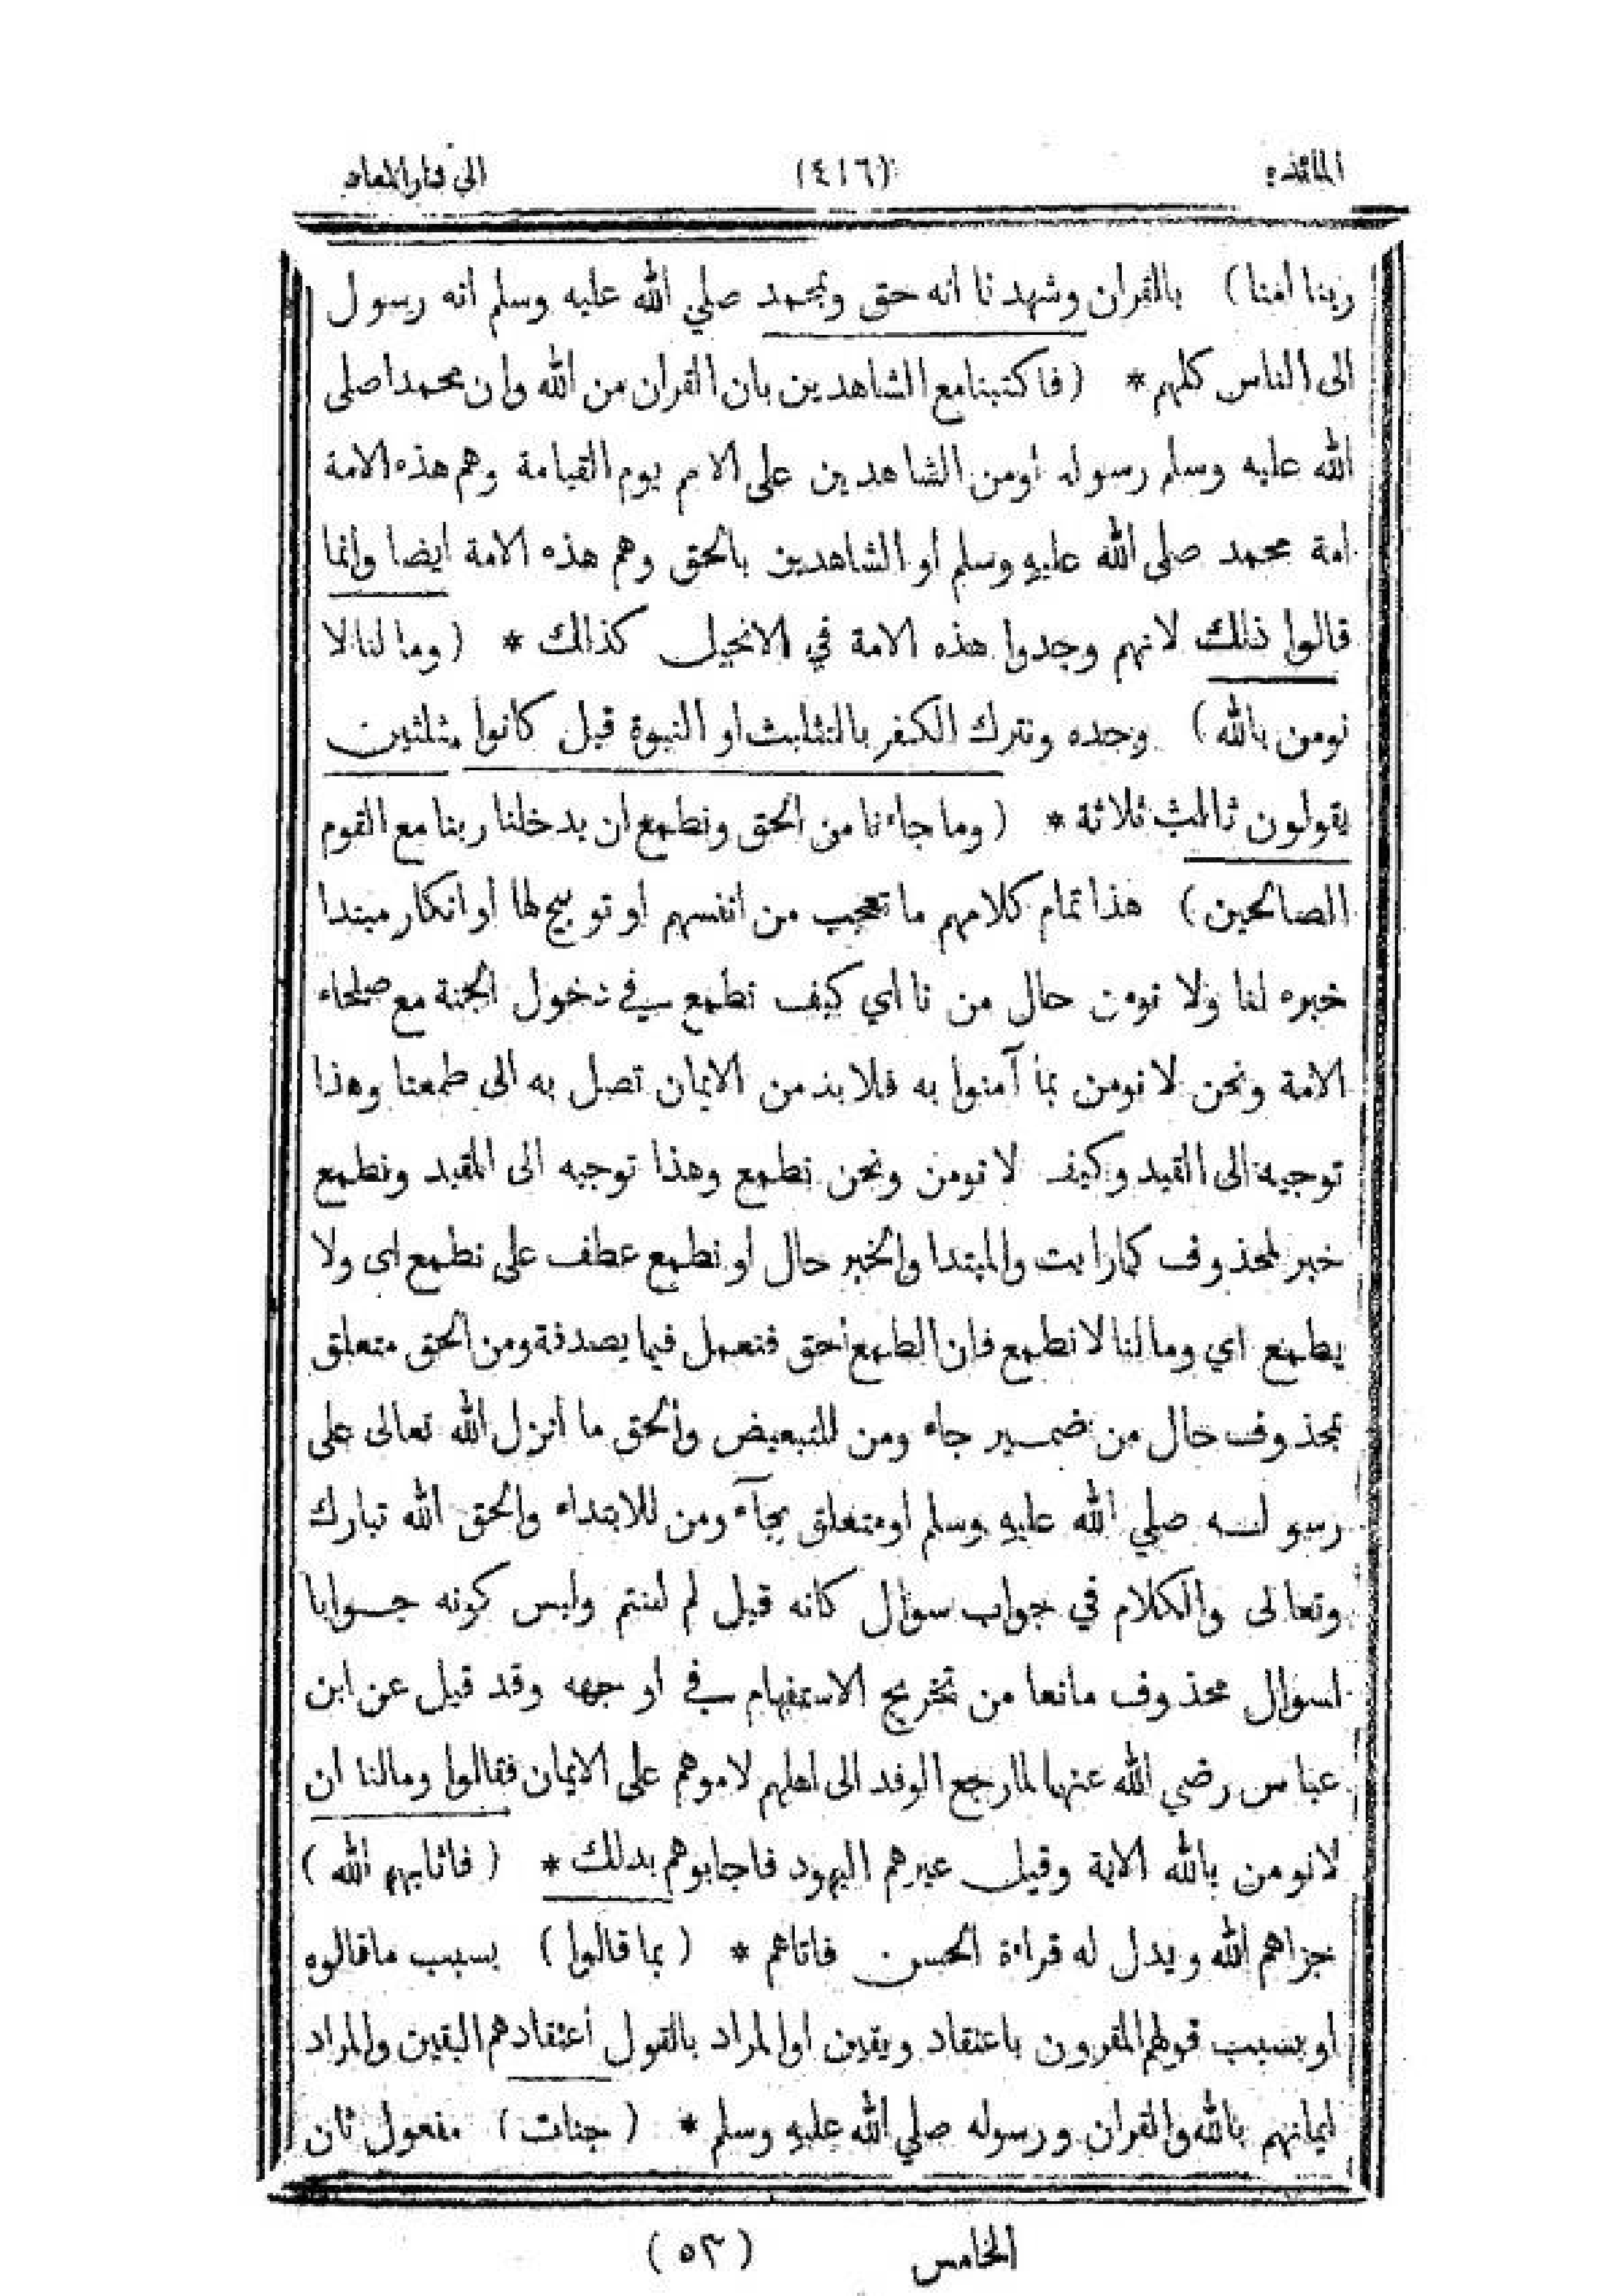 المائده (٤١٦) الى دار المعاد
ربنا امنا) بالقران وشهدنا انه حق وبمحمد صلي الله عليه وسلم انه رسول
الى الناس كلهم * (فاكتبنا مع الشاهدين بان القران من الله وان محمدا صلى
الله عليه وسلم رسوله أومن الشاهدين على الامم يوم القيامة وهم هذه الامة
امة محمد صلى الله عليه وسلم او الشاهدين بالحق وهم هذه الامة ايضا وانما
قالوا ذلك لانهم وجدوا هذه الامة في الانجيل كذالك * (وما لنا لا
نومن بالله) وحده ونترك الكفر بالتثليث او النبوة قيل كانوا مثلثين
يقولون ثالث ثلاثة * (وما جاءنا من الحق ونطمع ان يدخلنا ربنا مع القوم
الصالحين) هذا تمام كلامهم ما تعجب من انفسهم او توبيخ لها او انكار مبتدا
خبره لنا ولا نومن حال من نا اي كيف نطمع في دخول الجنة مع صلحاء
الامة ونحن لا نومن بما آمنوا به فلا بد من الايمان نصل به الى طمعنا وهذا
توجيه الى القيد وكيف لا نومن ونحن نطمع وهذا توجيه الى المقيد ونطمع
خبر لمحذوف كما رايت والمبتدا والخبر حال او نطمع عطف على نطمع اى ولا
يطمع اي وما لنا لا نطمع فان الطمع أحق فنعمل فيما يصدقه ومن الحق متعلق
بمحذوف حال من ضمير جاء ومن للتبعيض والحق ما أنزل الله تعالى على
رسوله صلي الله عليه وسلم اومتعلق بجآء ومن للابتداء والحق الله تبارك
وتعالى والكلام في جواب سوال كانه قيل لم امنتم وليس كونه جوابا
لسوال محذوف مانعا من تخريج الاستفهام في اوجهه وقد قيل عن ابن
عباس رضي الله عنهما لما رجع الوفد الى اهلهم لاموهم على الايمان فقالوا ومالنا ان
لانومن بالله الاية وقيل عيرهم اليهود فاجابوهم بدلك * (فاثابهم الله)
جزاهم الله ويدل له قراءة الحسن فاتاهم * (بما قالوا) بسبب ماقالوه
او بسبب قولهم المقرون باعتقاد ويقين اوالمراد بالقول أعتقادهم اليقين والمراد
ايمانهم بالله والقران ورسوله صلي الله عليه وسلم * (جنات) مفعول ثان
الخامس (٥٣)